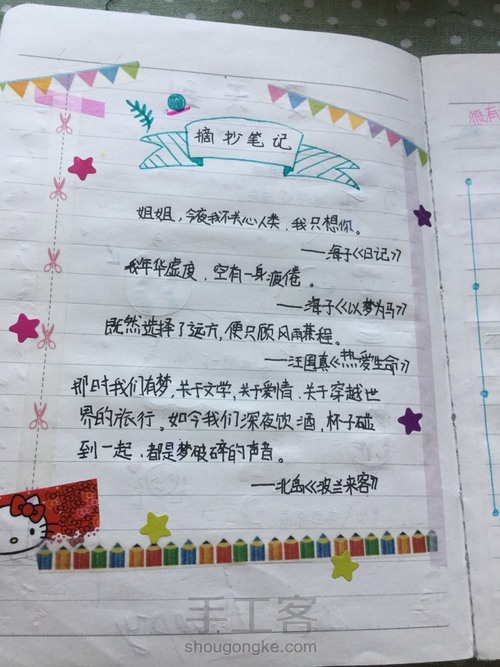 摘抄笔记
姐姐，今夜我不关心人类，我只想你。
——海子《日记》
我年华虚度，空有一身疲倦。
——海子《以梦为马》
既然选择了远方，便只顾风雨兼程。
——汪国真《热爱生命》
那时我们有梦，关于文学，关于爱情，关于穿越世
界的旅行。如今我们深夜饮酒，杯子碰
到一起，都是梦破碎的声音。
——北岛《波兰来客》
很有
手工客
shougongke.com